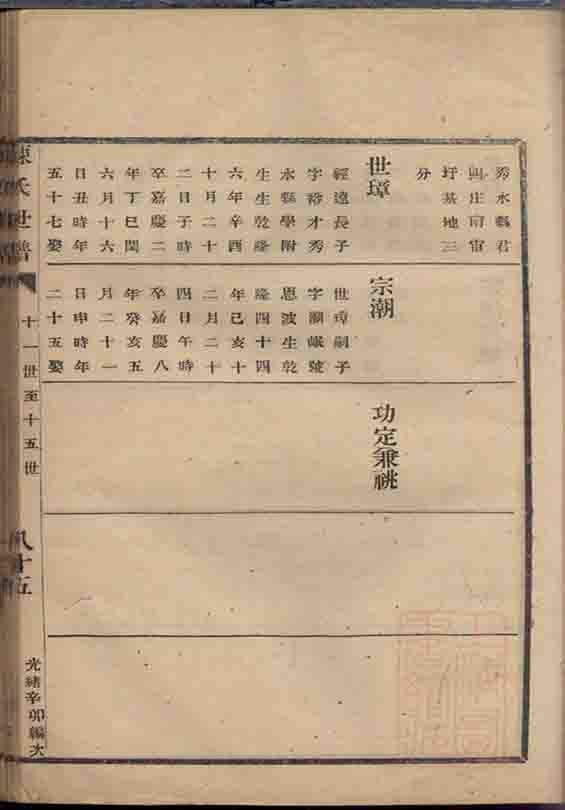 秀水縣君
圩基地三
分
世璋
經遠長子
字裕才秀
水縣學附
生生乾隆
六年辛酉
十月二十
二日子時
卒嘉慶二
年丁巳閏
六月十六
日丑時年
五十七娶
宗潮
世璋嗣子
恩波生乾
隆四十四
年己亥十
二月二十
四日午時
卒嘉慶八
年癸亥五
月二十一
日申時年
二十五娶
功定兼祧
陳氏世譜
十一世至十五世
八十五
光緒辛卯編次